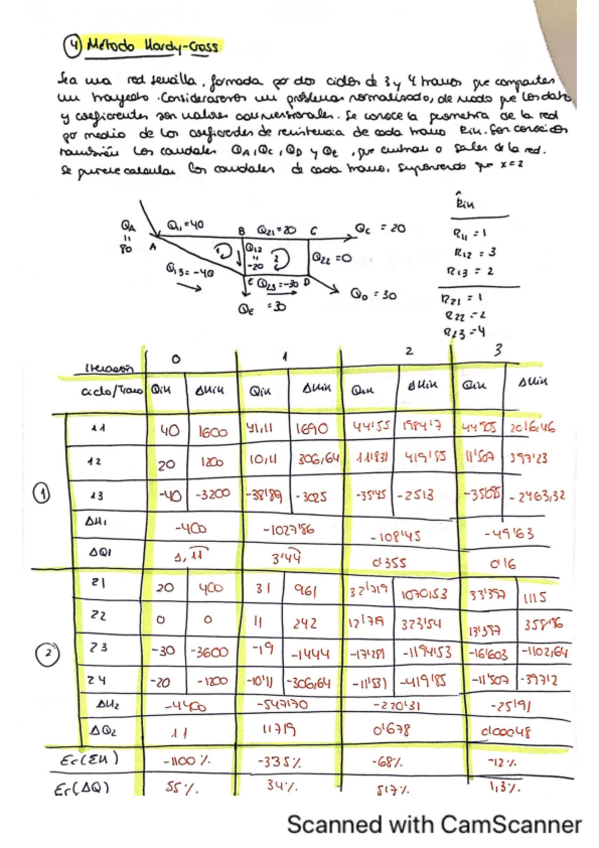 4 Método Hardy-Cross
Sea una red sencilla, formada por dos ciclos de 3 y 4 tramos que comparten
un trayecto. Consideraremos un problema normalizado, de modo que los datos
y coeficientes son valores convencionales. Se conoce la geometría de la red
por medio de los coeficientes de resistencia de cada tramo Rin. Son conocidos
también los caudales QA, QC, QD y QE, que entran o salen de la red.
Se puede calcular los caudales de cada tramo, suponiendo que x=2
R̂in
R11 = 1
R12 = 3
R13 = 2
R21 = 1
R22 = 2
R23 = 4
QA = 80
A
Q11=40
B
Q21=20
C
QC = 20
Q12 = -20
1
2
Q22=0
Q13=-40
E
Q23=-30
D
QE = 30
QD = 30
Iteración 0 1 2 3
Ciclo/Tramo Qin ΔHin Qin ΔHin Qin ΔHin Qin ΔHin
1
11 40 1600 41,11 1690 44'55 1984'7 44'905 2016,46
12 20 1200 10,11 306,64 11'831 419'85 11'507 397'23
13 -40 -3200 -38'89 -3025 -35'45 -2513 -35'095 -2463,32
ΔH1 -400 -1027'86 -108'45 -49'63
ΔQ1 1,11 3'44 0'355 0'16
2
21 20 400 31 961 32'719 1070'53 33'397 1115
22 0 0 11 242 12'719 323'54 13'397 358'96
23 -30 -3600 -19 -1444 -17'281 -1194'53 -16'603 -1102,64
24 -20 -1200 -10'11 -306,64 -11'831 -419'85 -11'507 -397'2
ΔH2 -4400 -547'70 -220'31 -25'91
ΔQ2 11 1'719 0'678 0'00048
Er(ΣH) -1100 % -335% -68% -12%
Er(ΔQ) 55% 34% 5'7% 1,3%
Scanned with CamScanner